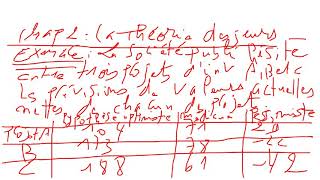 chap 2: La théorie des jeux
Exemple: La société public hésite
entre trois projets d'inv A, B et C
les prévisions de valeurs actuelles
nettes de chacun des projets
hypothèse optimiste médium pessimiste
Projet A 104 71
B 173 78 -22
C 188 61 -42